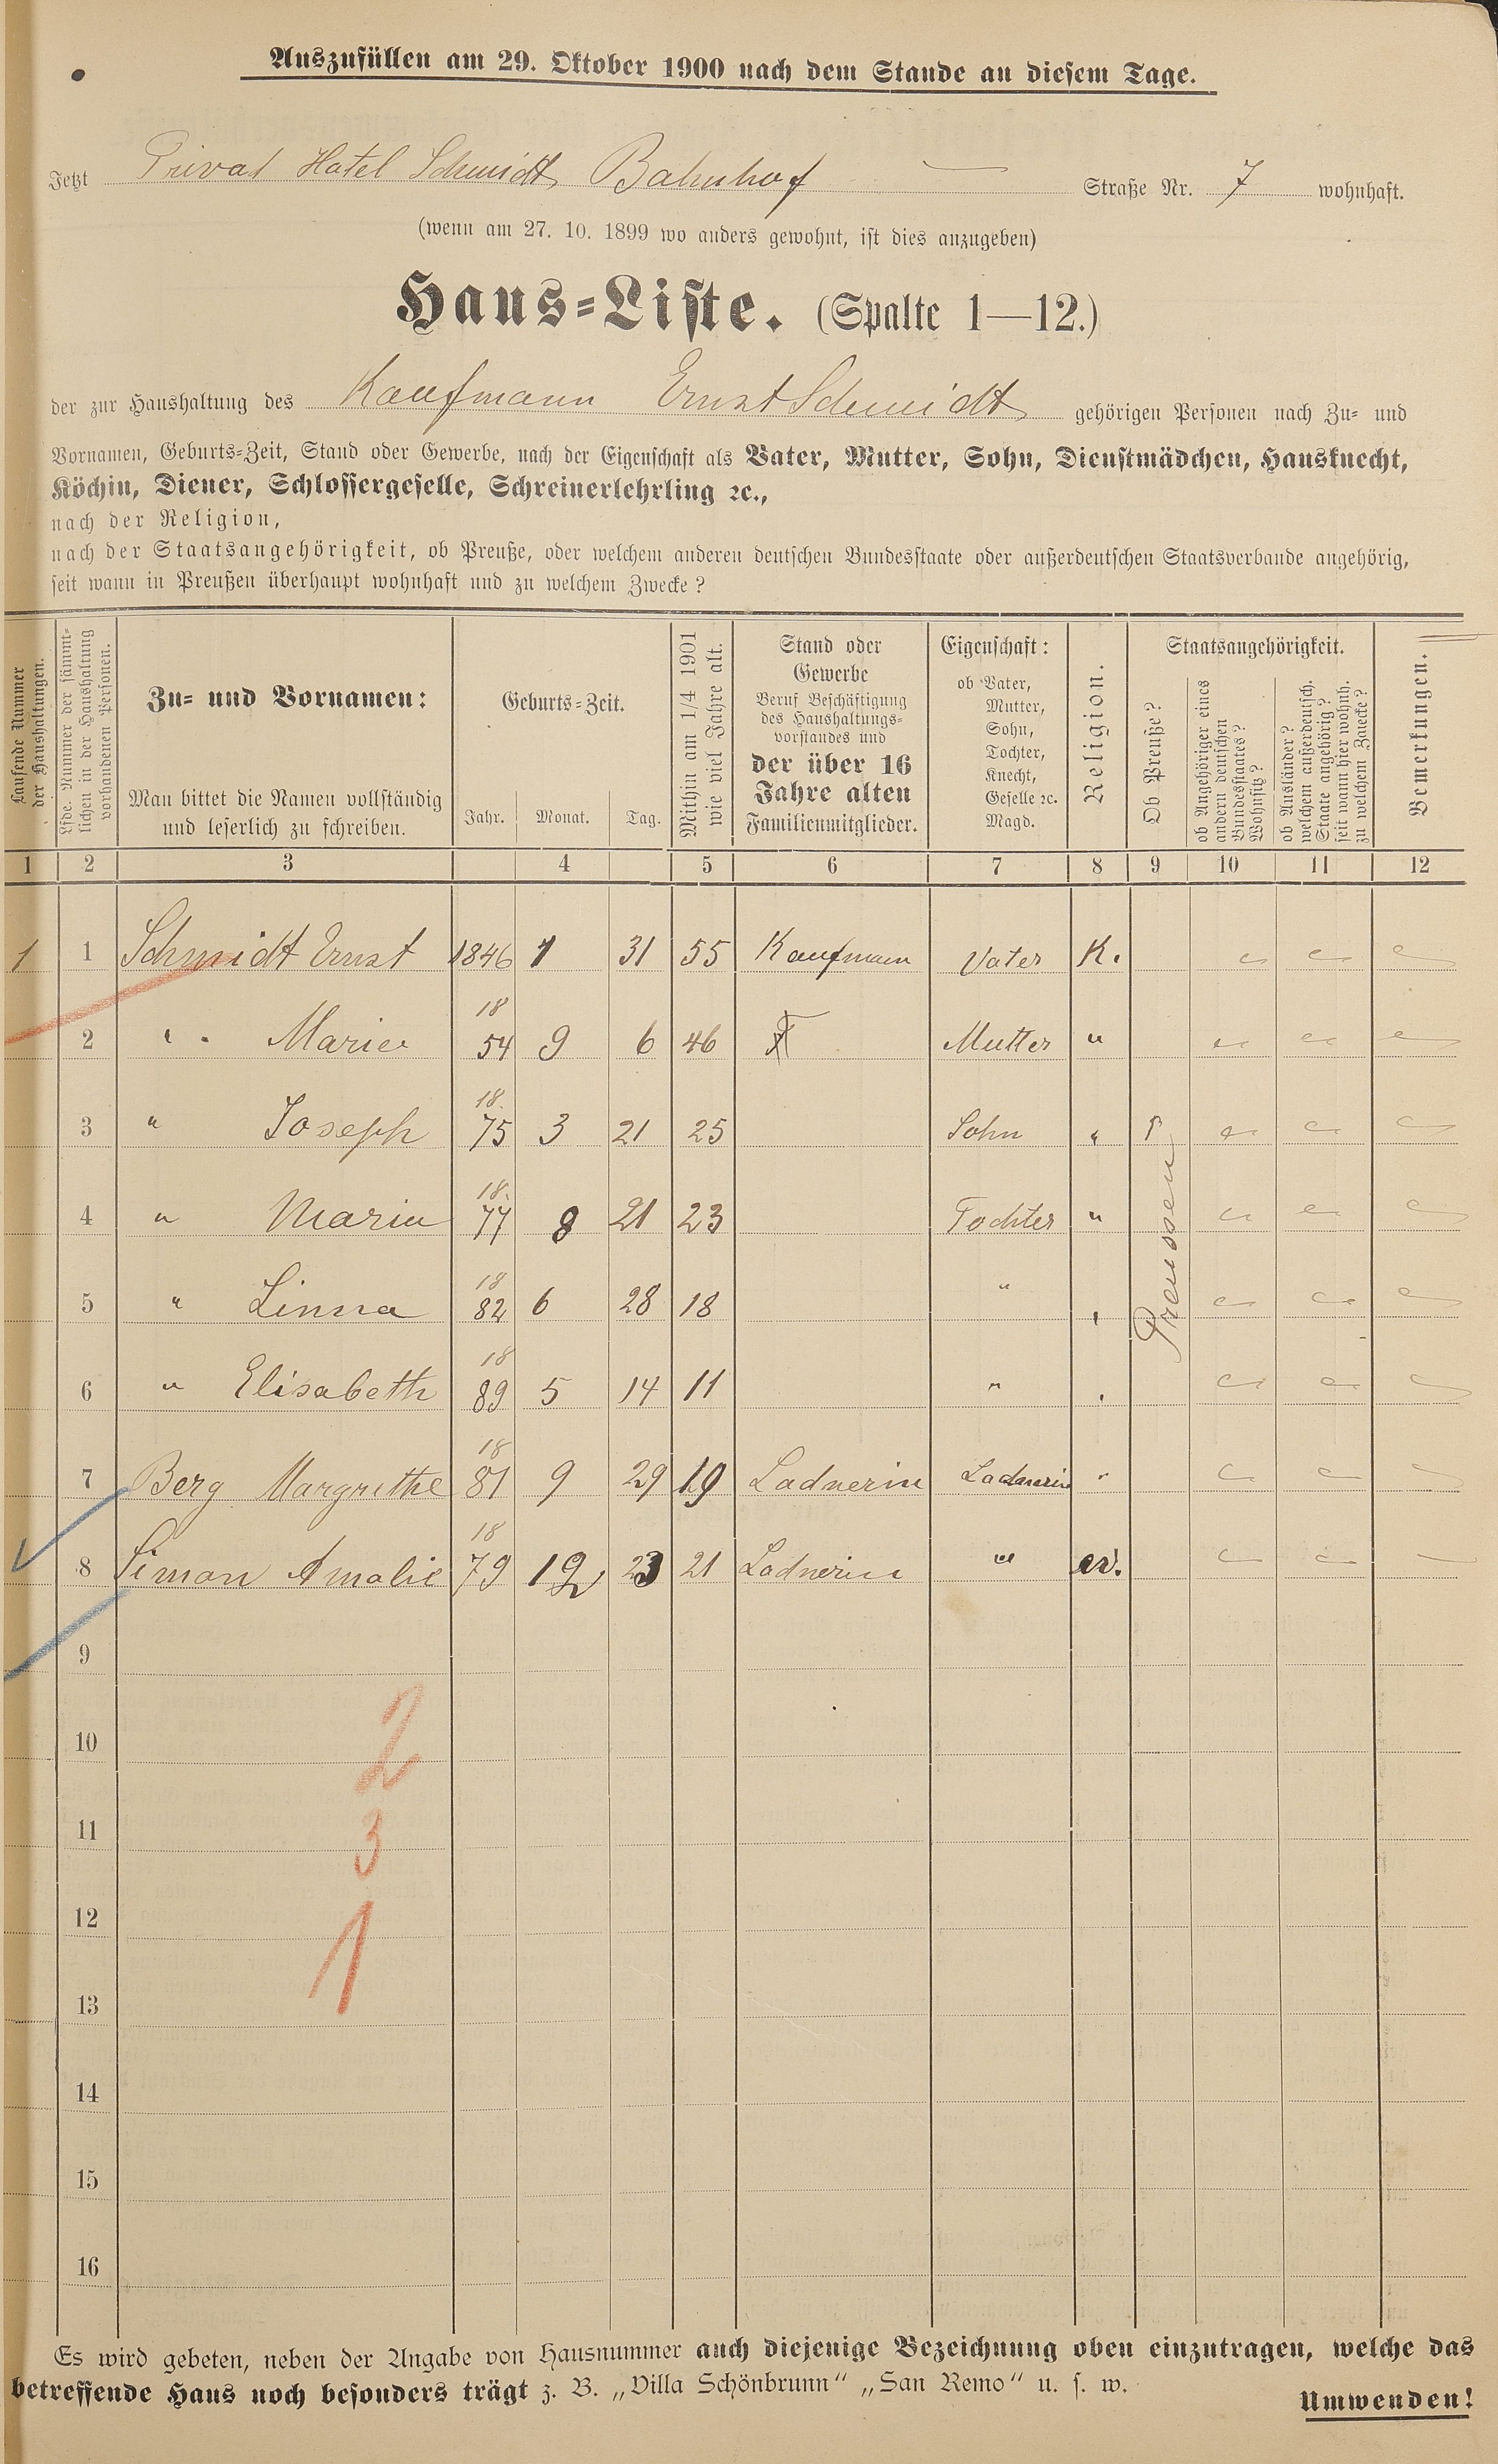 Auszufüllen am 29. Oktober 1900 nach dem Stande an diesem Tage.
Jetzt Privat Hotel Schmidt, Bahnhof — Straße Nr. 7 wohnhaft.
(wenn am 27. 10. 1899 wo anders gewohnt, ist dies anzugeben)
Haus-Liste. (Spalte 1—12.)
der zur Haushaltung des Kaufmann Ernst Schmidt gehörigen Personen nach Zu- und
Vornamen, Geburts-Zeit, Stand oder Gewerbe, nach der Eigenschaft als Vater, Mutter, Sohn, Dienstmädchen, Hausknecht,
Köchin, Diener, Schlossergeselle, Schreinerlehrling ꝛc.,
nach der Religion,
nach der Staatsangehörigkeit, ob Preuße, oder welchem anderen deutschen Bundesstaate oder außerdeutschen Staatsverbande angehörig,
seit wann in Preußen überhaupt wohnhaft und zu welchem Zwecke?
Laufende Nummer
der Haushaltungen.
Lfde. Nummer der sämmt-
lichen in der Haushaltung
vorhandenen Personen.
Zu- und Vornamen:
Man bittet die Namen vollständig
und leserlich zu schreiben.
Geburts-Zeit.
Jahr. Monat. Tag.
Mithin am 1/4 1901
wie viel Jahre alt.
Stand oder
Gewerbe
Beruf Beschäftigung
des Haushaltungs-
vorstandes und
der über 16
Jahre alten
Familienmitglieder.
Eigenschaft:
ob Vater,
Mutter,
Sohn,
Tochter,
Knecht,
Geselle ꝛc.
Magd.
Religion.
Staatsangehörigkeit.
Ob Preuße?
ob Angehöriger eines
andern deutschen
Bundesstaates?
Wohnsitz?
ob Ausländer?
welchem außerdeutsch.
Staate angehörig?
seit wann hier wohnh.
zu welchem Zwecke?
Bemerkungen.
1 2 3 4 5 6 7 8 9 10 11 12
1 1 Schmidt Ernst 1846 1 31 55 Kaufmann Vater K.
2 " Marie 18 54 9 6 46 Mutter "
3 " Joseph 18 75 3 21 25 Sohn "
4 " Maria 18 77 8 21 23 Tochter "
Preussen
5 " Linna 18 82 6 28 18 " "
6 " Elisabeth 18 89 5 14 11 " "
7 Berg Margrethe 18 81 9 29 19 Ladnerin Ladnerin "
8 Simon Amalie 18 79 12 23 21 Ladnerin " ev.
9
10 2
11 3
12 1
13
14
15
16
Es wird gebeten, neben der Angabe von Hausnummer auch diejenige Bezeichnung oben einzutragen, welche das
betreffende Haus noch besonders trägt z. B. „Villa Schönbrunn“ „San Remo“ u. s. w.
Umwenden!